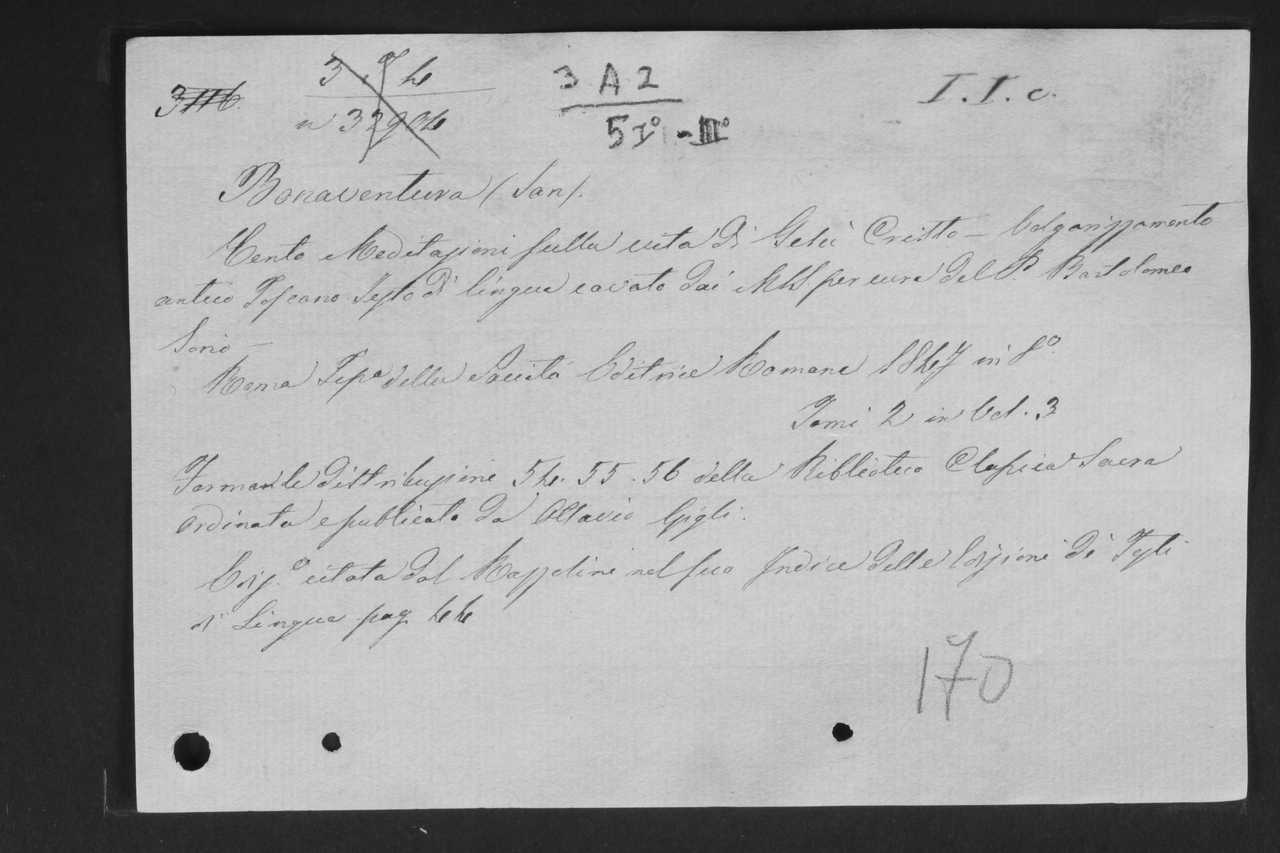 3 A 2
5 Iº - IIIº
I. I. c.
Bonaventura (San).
Cento Meditazioni sulla vita di Gesù Cristo - Volgarizzamento
antico Toscano Testo di lingua cavato dai MSS. per cura del P. Bartolomeo
Sorio -
Roma Tipª della Società Editrice Romana 1847 in 8º.
Tomi 2 in Vol. 3
Formanle distribuzione 54. 55. 56 della Biblioteca Classica Sacra
ordinata e publicata da Ottavio Gigli.
Ediz.e citata dal Razzolini nel suo Indice delle Edizioni di Testi
di Lingua pag. 44
170